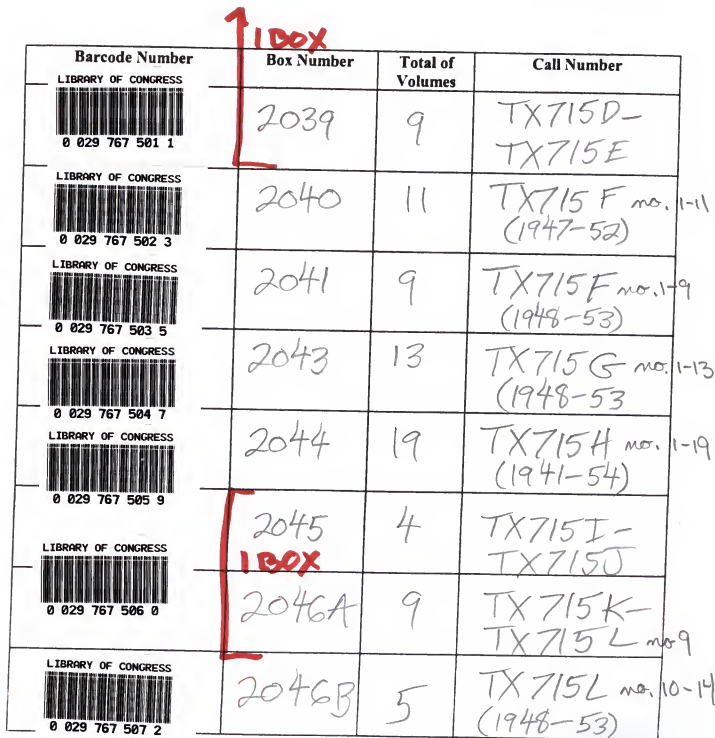 1 BOX
Barcode Number Box Number Total of Volumes Call Number
LIBRARY OF CONGRESS
0 029 767 501 1
2039 9 TX715D-
TX715E
LIBRARY OF CONGRESS
0 029 767 502 3
2040 11 TX715 F no. 1-11
(1947-52)
LIBRARY OF CONGRESS
0 029 767 503 5
2041 9 TX715F no. 1-9
(1948-53)
LIBRARY OF CONGRESS
0 029 767 504 7
2043 13 TX715G no. 1-13
(1948-53
LIBRARY OF CONGRESS
0 029 767 505 9
2044 19 TX715H no. 1-19
(1941-54)
2045 4 TX715I-
TX715J
1 BOX
LIBRARY OF CONGRESS
0 029 767 506 0
2046A 9 TX715K-
TX715L no 9
LIBRARY OF CONGRESS
0 029 767 507 2
2046B 5 TX715L no. 10-14
(1948-53)